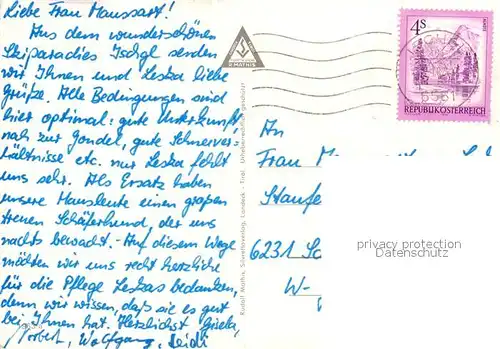 Liebe Frau Maussart!
Aus dem wunderschönen
Skiparadies Ischgl senden
wir Ihnen und Leska liebe
Grüße. Alle Bedingungen sind
hier optimal: gute Unterkunft,
nah zur Gondel, gute Schneever-
hältnisse etc. nur Leska fehlt
uns sehr. Als Ersatz haben
unsere Hausleute einen großen
treuen Schäferhund, der uns
nachts bewacht. - Auf diesem Wege
möchten wir uns recht herzliche
für die Pflege Leskas bedanken,
denn wir wissen, daß sie es gut
bei Ihnen hat. Herzlichst Gisela,
Norbert, Wolfgang, Heidi
R. MATHIS
Rudolf Mathis, Silvrettaverlag, Landeck - Tirol. Urheberrechtlich geschützt
4S
REPUBLIK ÖSTERREICH
6561
An
Frau M
Staufe
6231 Sc
W-
privacy protection
Datenschutz